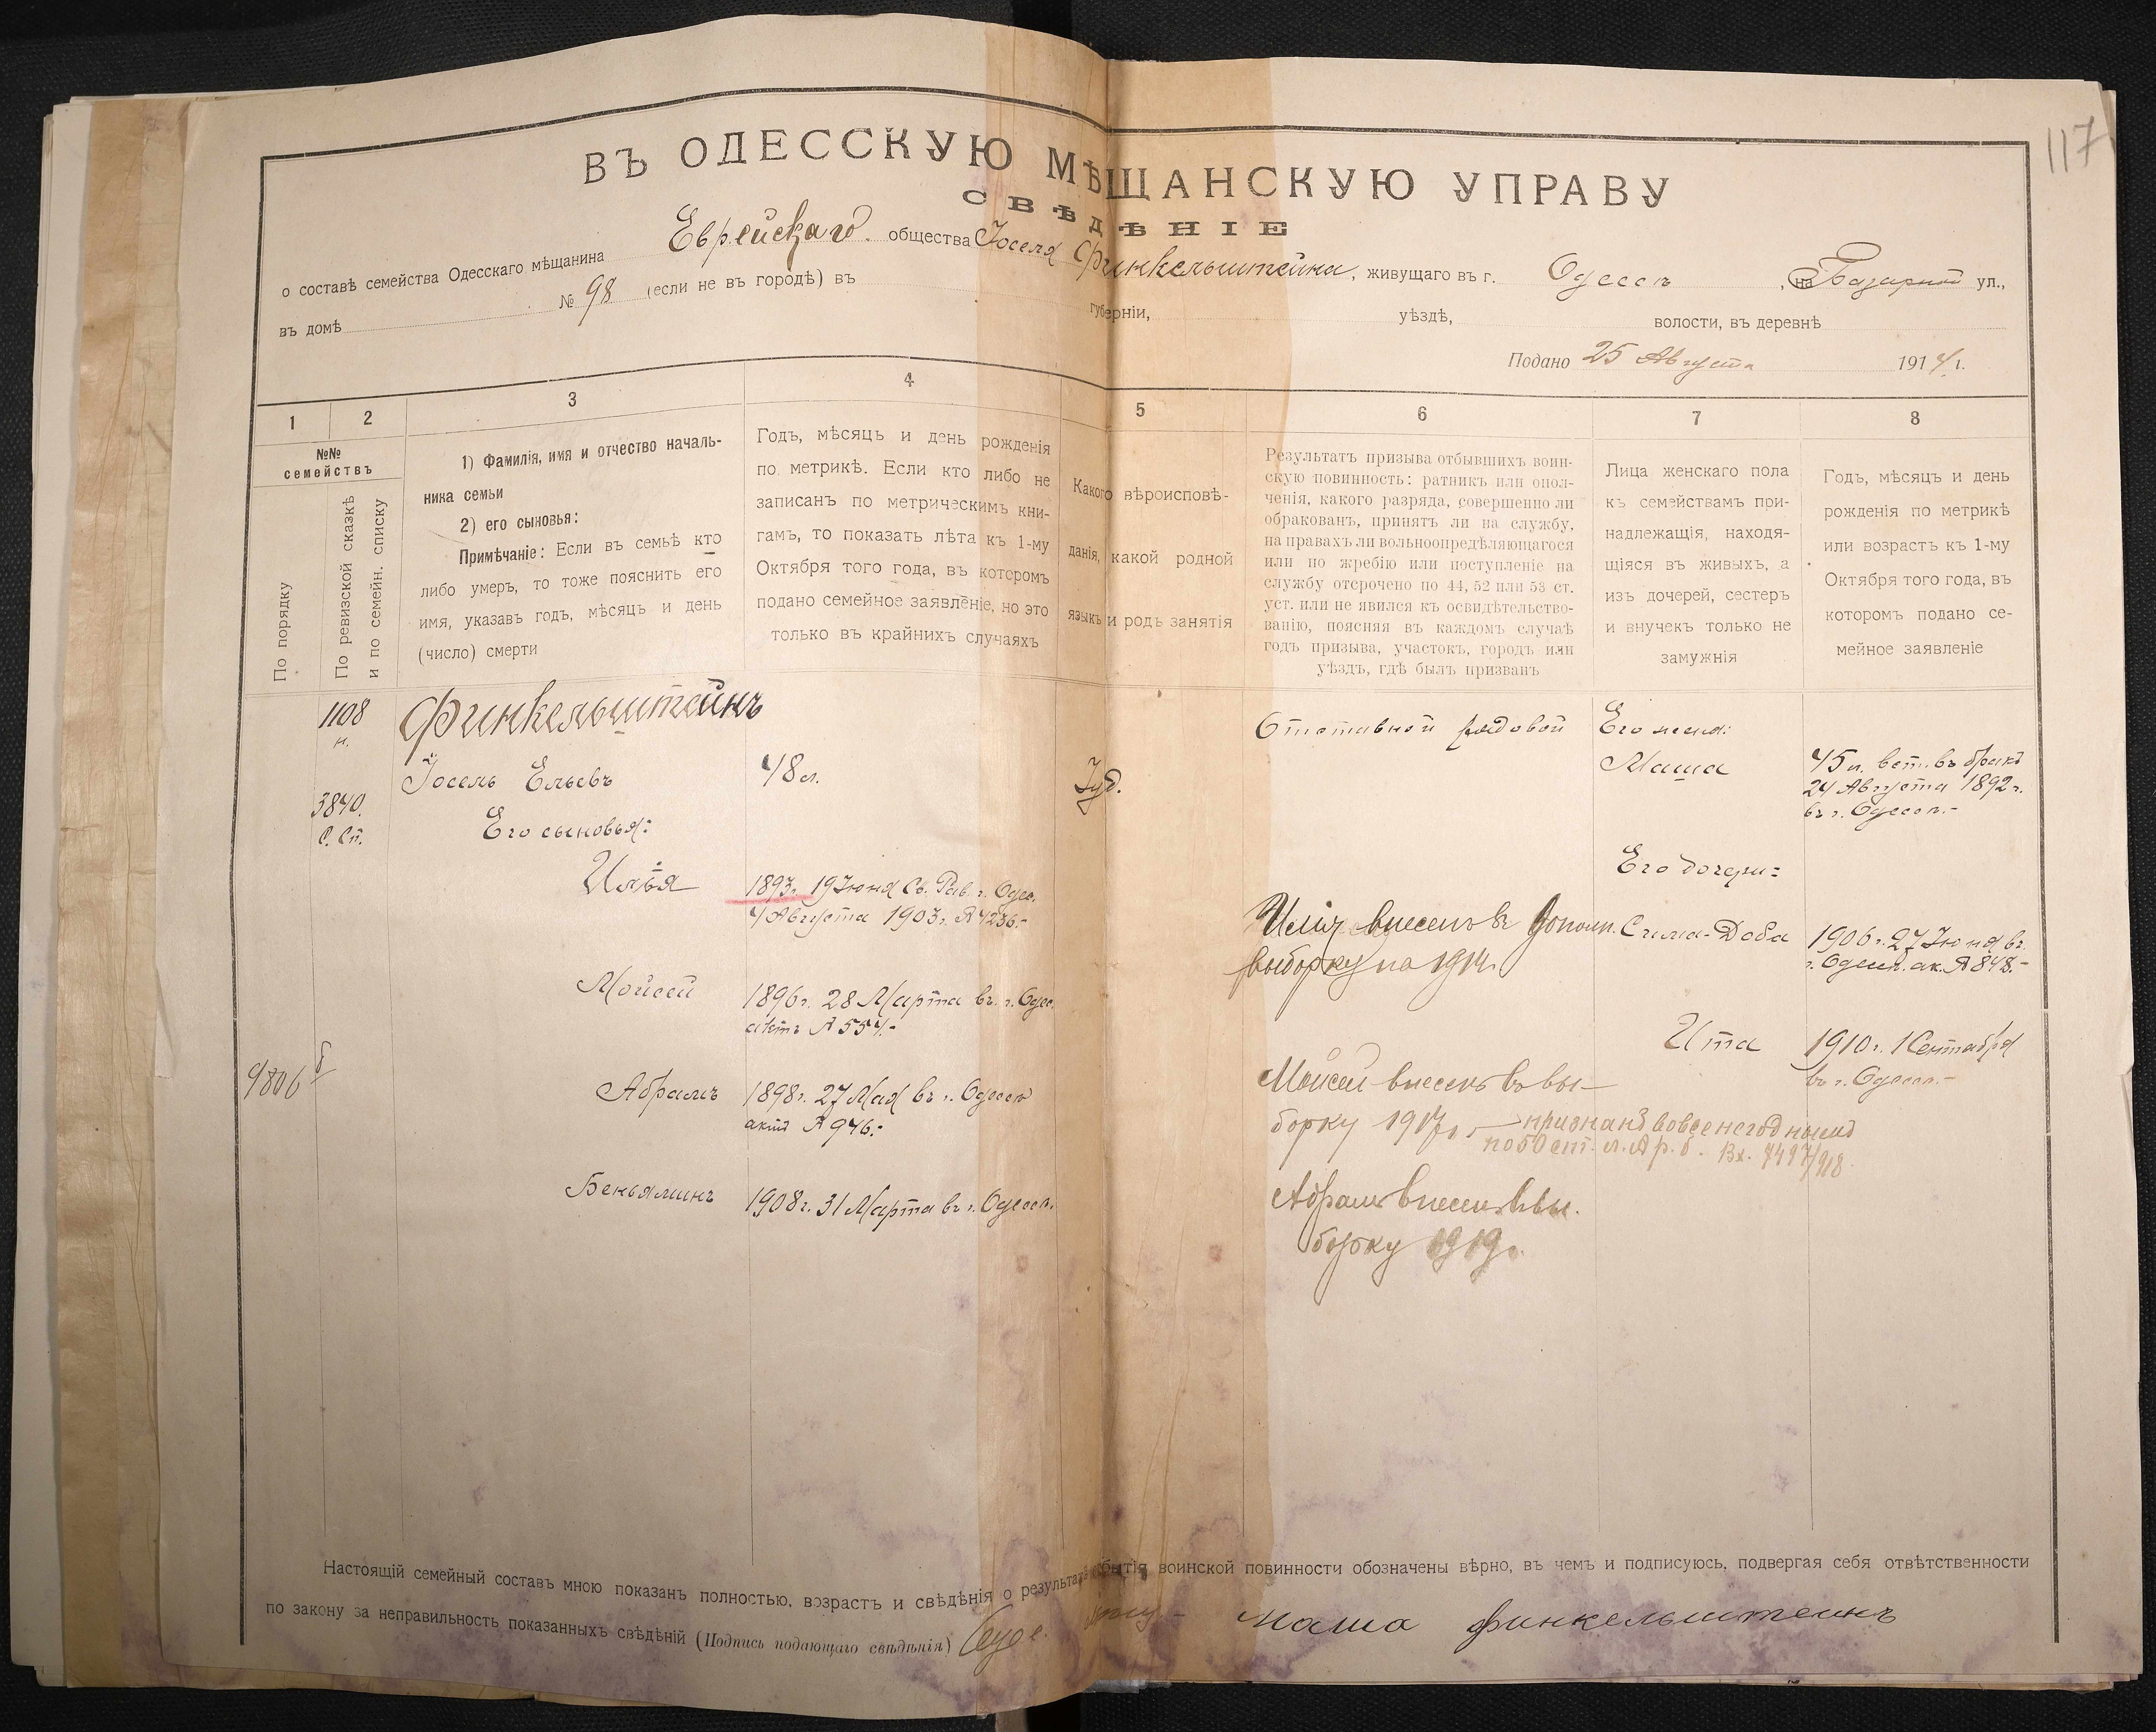 117
ВЪ ОДЕССКУЮ МѢЩАНСКУЮ УПРАВУ
СВѢДѢНІЕ
о составѣ семейства Одесскаго мѣщанина Еврейскаго общества Іоселя Финкельштейна, живущаго въ г. Одессѣ, на Базарной ул.,
въ домѣ № 98 (если не въ городѣ) въ губерніи, уѣздѣ, волости, въ деревнѣ
Подано 25 Августа 1914 г.
1 2 3 4 5 6 7 8
№№
семействъ
По порядку
По ревизской сказкѣ
и по семейн. списку
1) Фамилія, имя и отчество началь-
ника семьи
2) его сыновья:
Примѣчаніе: Если въ семьѣ кто
либо умеръ, то тоже пояснить его
имя, указавъ годъ, мѣсяцъ и день
(число) смерти
Годъ, мѣсяцъ и день рожденія
по метрикѣ. Если кто либо не
записанъ по метрическимъ кни-
гамъ, то показать лѣта къ 1-му
Октября того года, въ которомъ
подано семейное заявленіе, но это
только въ крайнихъ случаяхъ
Какого вѣроисповѣ-
данія, какой родной
языкъ и родъ занятія
Результатъ призыва отбывшихъ воин-
скую повинность: ратникъ или опол-
ченія, какого разряда, совершенно ли
обракованъ, принятъ ли на службу,
на правахъ ли вольноопредѣляющагося
или по жребію или поступленіе на
службу отсрочено по 44, 52 или 53 ст.
уст. или не явился къ освидѣтельство-
ванію, поясняя въ каждомъ случаѣ
годъ призыва, участокъ, городъ или
уѣздъ, гдѣ былъ призванъ
Лица женскаго пола
къ семействамъ при-
надлежащія, находя-
щіяся въ живыхъ, а
изъ дочерей, сестеръ
и внучекъ только не
замужнія
Годъ, мѣсяцъ и день
рожденія по метрикѣ
или возрастъ къ 1-му
Октября того года, въ
которомъ подано се-
мейное заявленіе
1108
н.
Финкельштейнъ
Отставной рядовой
Его жена:
Іосель Ельевъ
48 л.
Іуд.
Маша
45 л. вст. въ бракъ
24 Августа 1892 г.
въ г. Одессѣ.-
3840.
С. Сп.
Его сыновья:
Его дочери:
Илья
1893 г. 19 Іюня Св. Рав. г. Одес.
4 Августа 1903 г. № 4236.-
внесенъ въ дополн.
выборку на 1914 г.
Сима-Доба
1906 г. 27 Іюня въ
г. Одессѣ. ак. № 848.-
Мойсей
1896 г. 28 Марта въ г. Одес.
актъ № 554.-
Ита
1910 г. 1 Сентября
въ г. Одессѣ.-
9806
Абрамъ
1898 г. 27 Мая въ г. Одессѣ
актъ № 946.-
Мойсей внесенъ въ вы-
борку 1917 г. - признанъ вовсе негоднымъ
по 50 ст. л. А р. б. Вх. 7497/918.
Беньяминъ
1908 г. 31 Марта въ г. Одессѣ.
Абрамъ внесенъ въ вы-
борку 1919 г.
Настоящій семейный составъ мною показанъ полностью, возрастъ и свѣдѣнія о результатѣ отбытія воинской повинности обозначены вѣрно, въ чемъ и подписуюсь, подвергая себя отвѣтственности
по закону за неправильность показанныхъ свѣдѣній (Подпись подающаго свѣдѣнія) маша финкельштеинъ